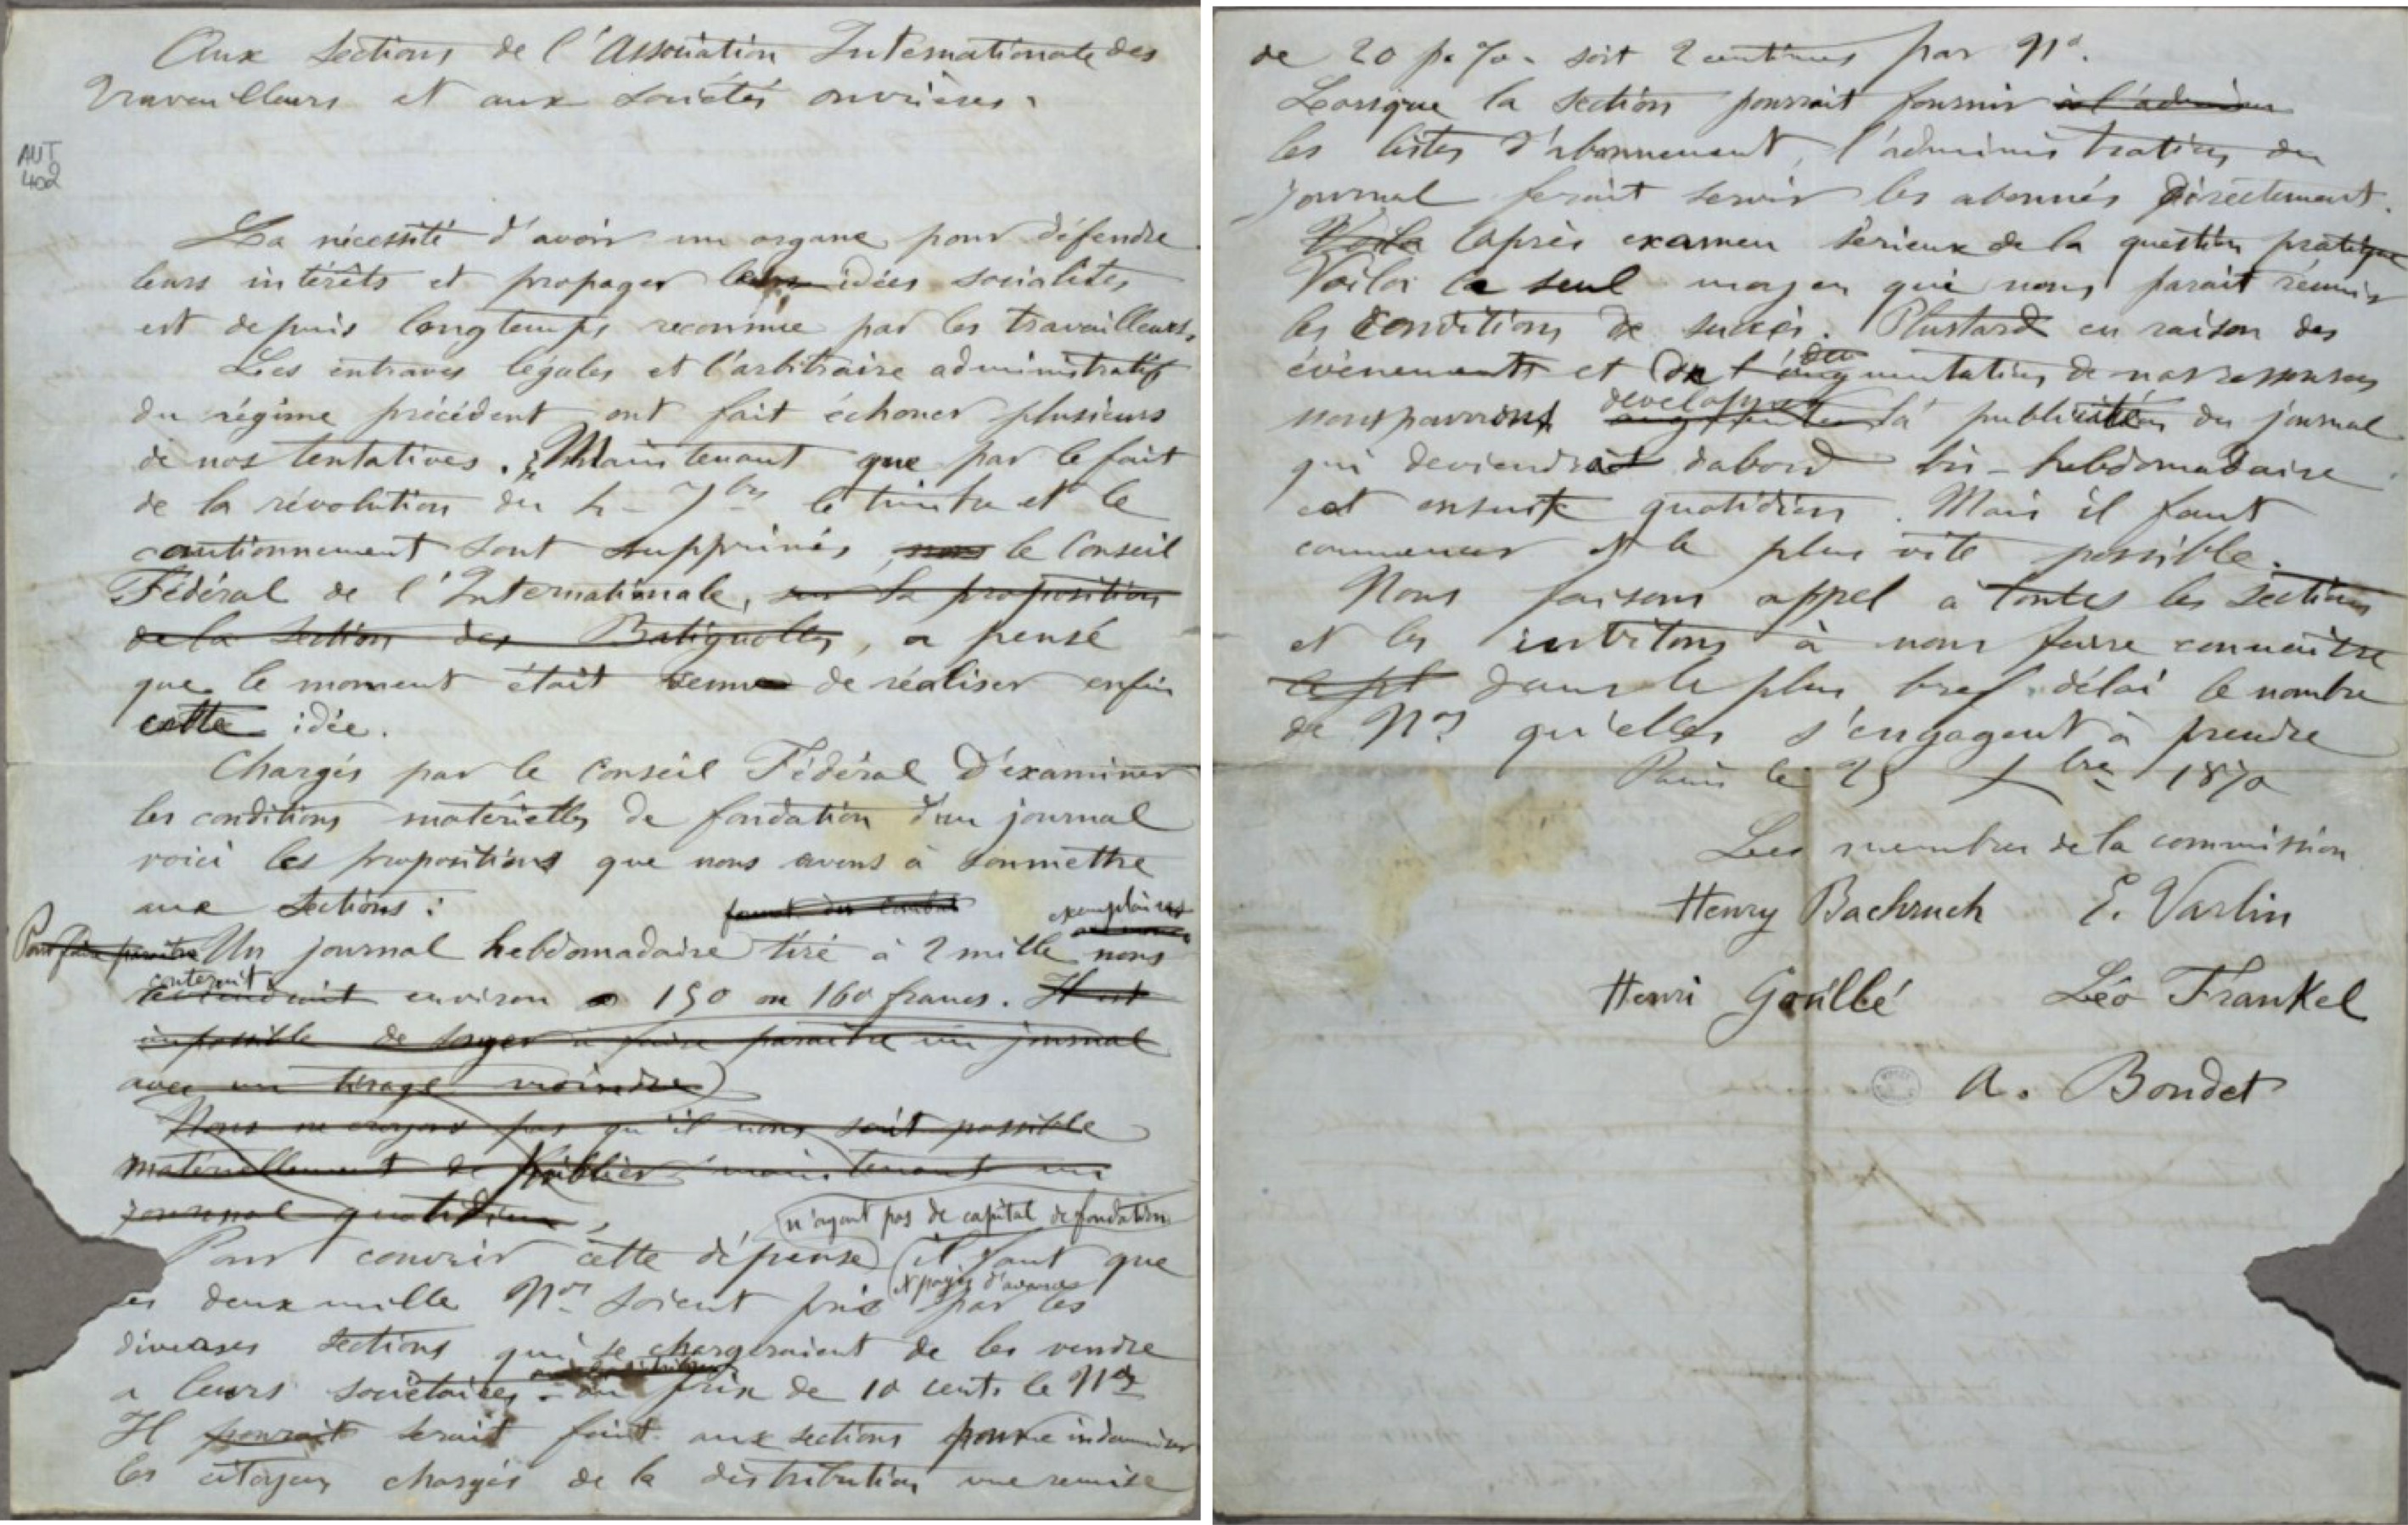 Aux sections de l'Association Internationale des
Travailleurs et aux sociétés ouvrières.
AUT
402
La nécessité d'avoir un organe pour défendre
leurs intérêts et propager leurs idées socialistes
est depuis longtemps reconnue par les travailleurs.
Les entraves légales et l'arbitraire administratif
du régime précédent ont fait échouer plusieurs
de nos tentatives. Maintenant que par le fait
de la révolution du 4 7bre le timbre et le
cautionnement sont supprimés, nous le Conseil
Fédéral de l'Internationale, sur la proposition
de la section des Batignolles, a pensé
que le moment était venu de réaliser enfin
cette idée.
Chargés par le Conseil Fédéral d'examiner
les conditions matérielles de fondation d'un journal
voici les propositions que nous avons à soumettre
aux sections :
format du combat exemplaires
Pour faire paraitre Un journal hebdomadaire tiré à 2 mille nous
couterait
environ 150 ou 160 francs. Il est
impossible de songer à faire paraitre un journal
avec un tirage moindre)
Nous ne croyons pas qu'il nous soit possible
matériellement de publier maintenant un
journal quotidien,
n'ayant pas de capital de fondation
Pour couvrir cette dépense il faut que
et payés d'avance
les deux mille Nos soient pris par les
diverses sections qui se chargeraient de les vendre
a leurs sociétaires au prix de 10 cent. le No
Il pourrait serait fait aux sections pour indemniser
les citoyens chargés de la distribution une remise
de 20 p. %. soit 2 centimes par No.
Lorsque la section pourrait fournir à l'admin
les listes d'abonnement, l'administration du
journal ferait servir les abonnés directement.
Voila après examen sérieux de la question pratique
Voilà le seul moyen qui nous parait réunir
les conditions de succès. Plustard en raison des
évènements et de l'augmentation de nos ressources
developper
nous pourrions augmenter la publicité du journal
qui deviendrait dabord bi-hebdomadaire
et ensuite quotidien. Mais il faut
commencer et le plus vite possible.
Nous faisons appel à toutes les sections
et les invitons à nous faire connaitre
dans le plus bref délai le nombre
de Nos qu'elles s'engagent à prendre
Paris le 25 Xbre 1870
Les membres de la commission
Henry Bachruch E. Varlin
Henri Goullé Léo Frankel
A. Boudet